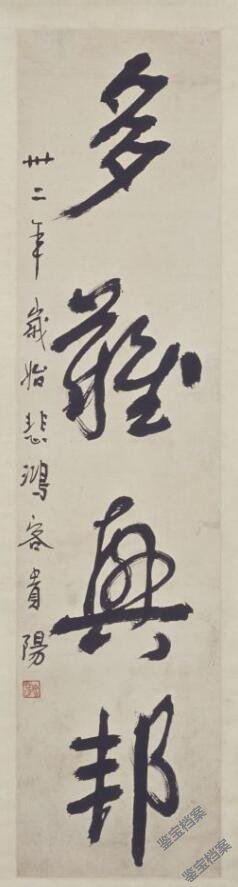 多難興邦
卅二年歲始悲鴻客貴陽
鉴宝档案
鉴宝档案